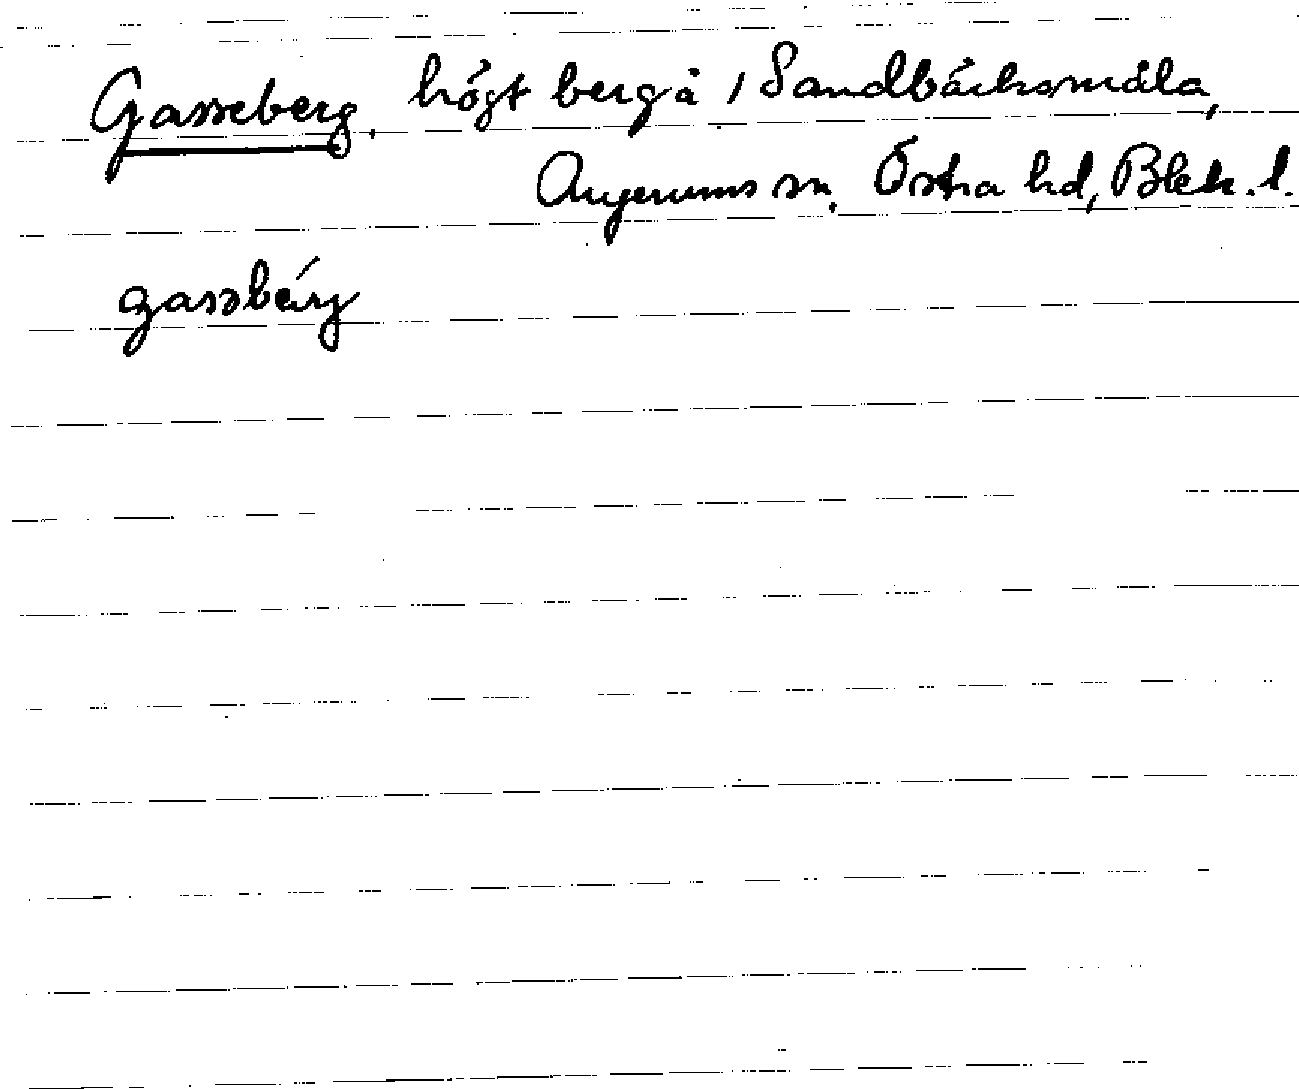 Gasseberg, högt berg å 1 Sandbäcksmåla,
Augerums sn, Östra hd, Blek. l.
gassbérg